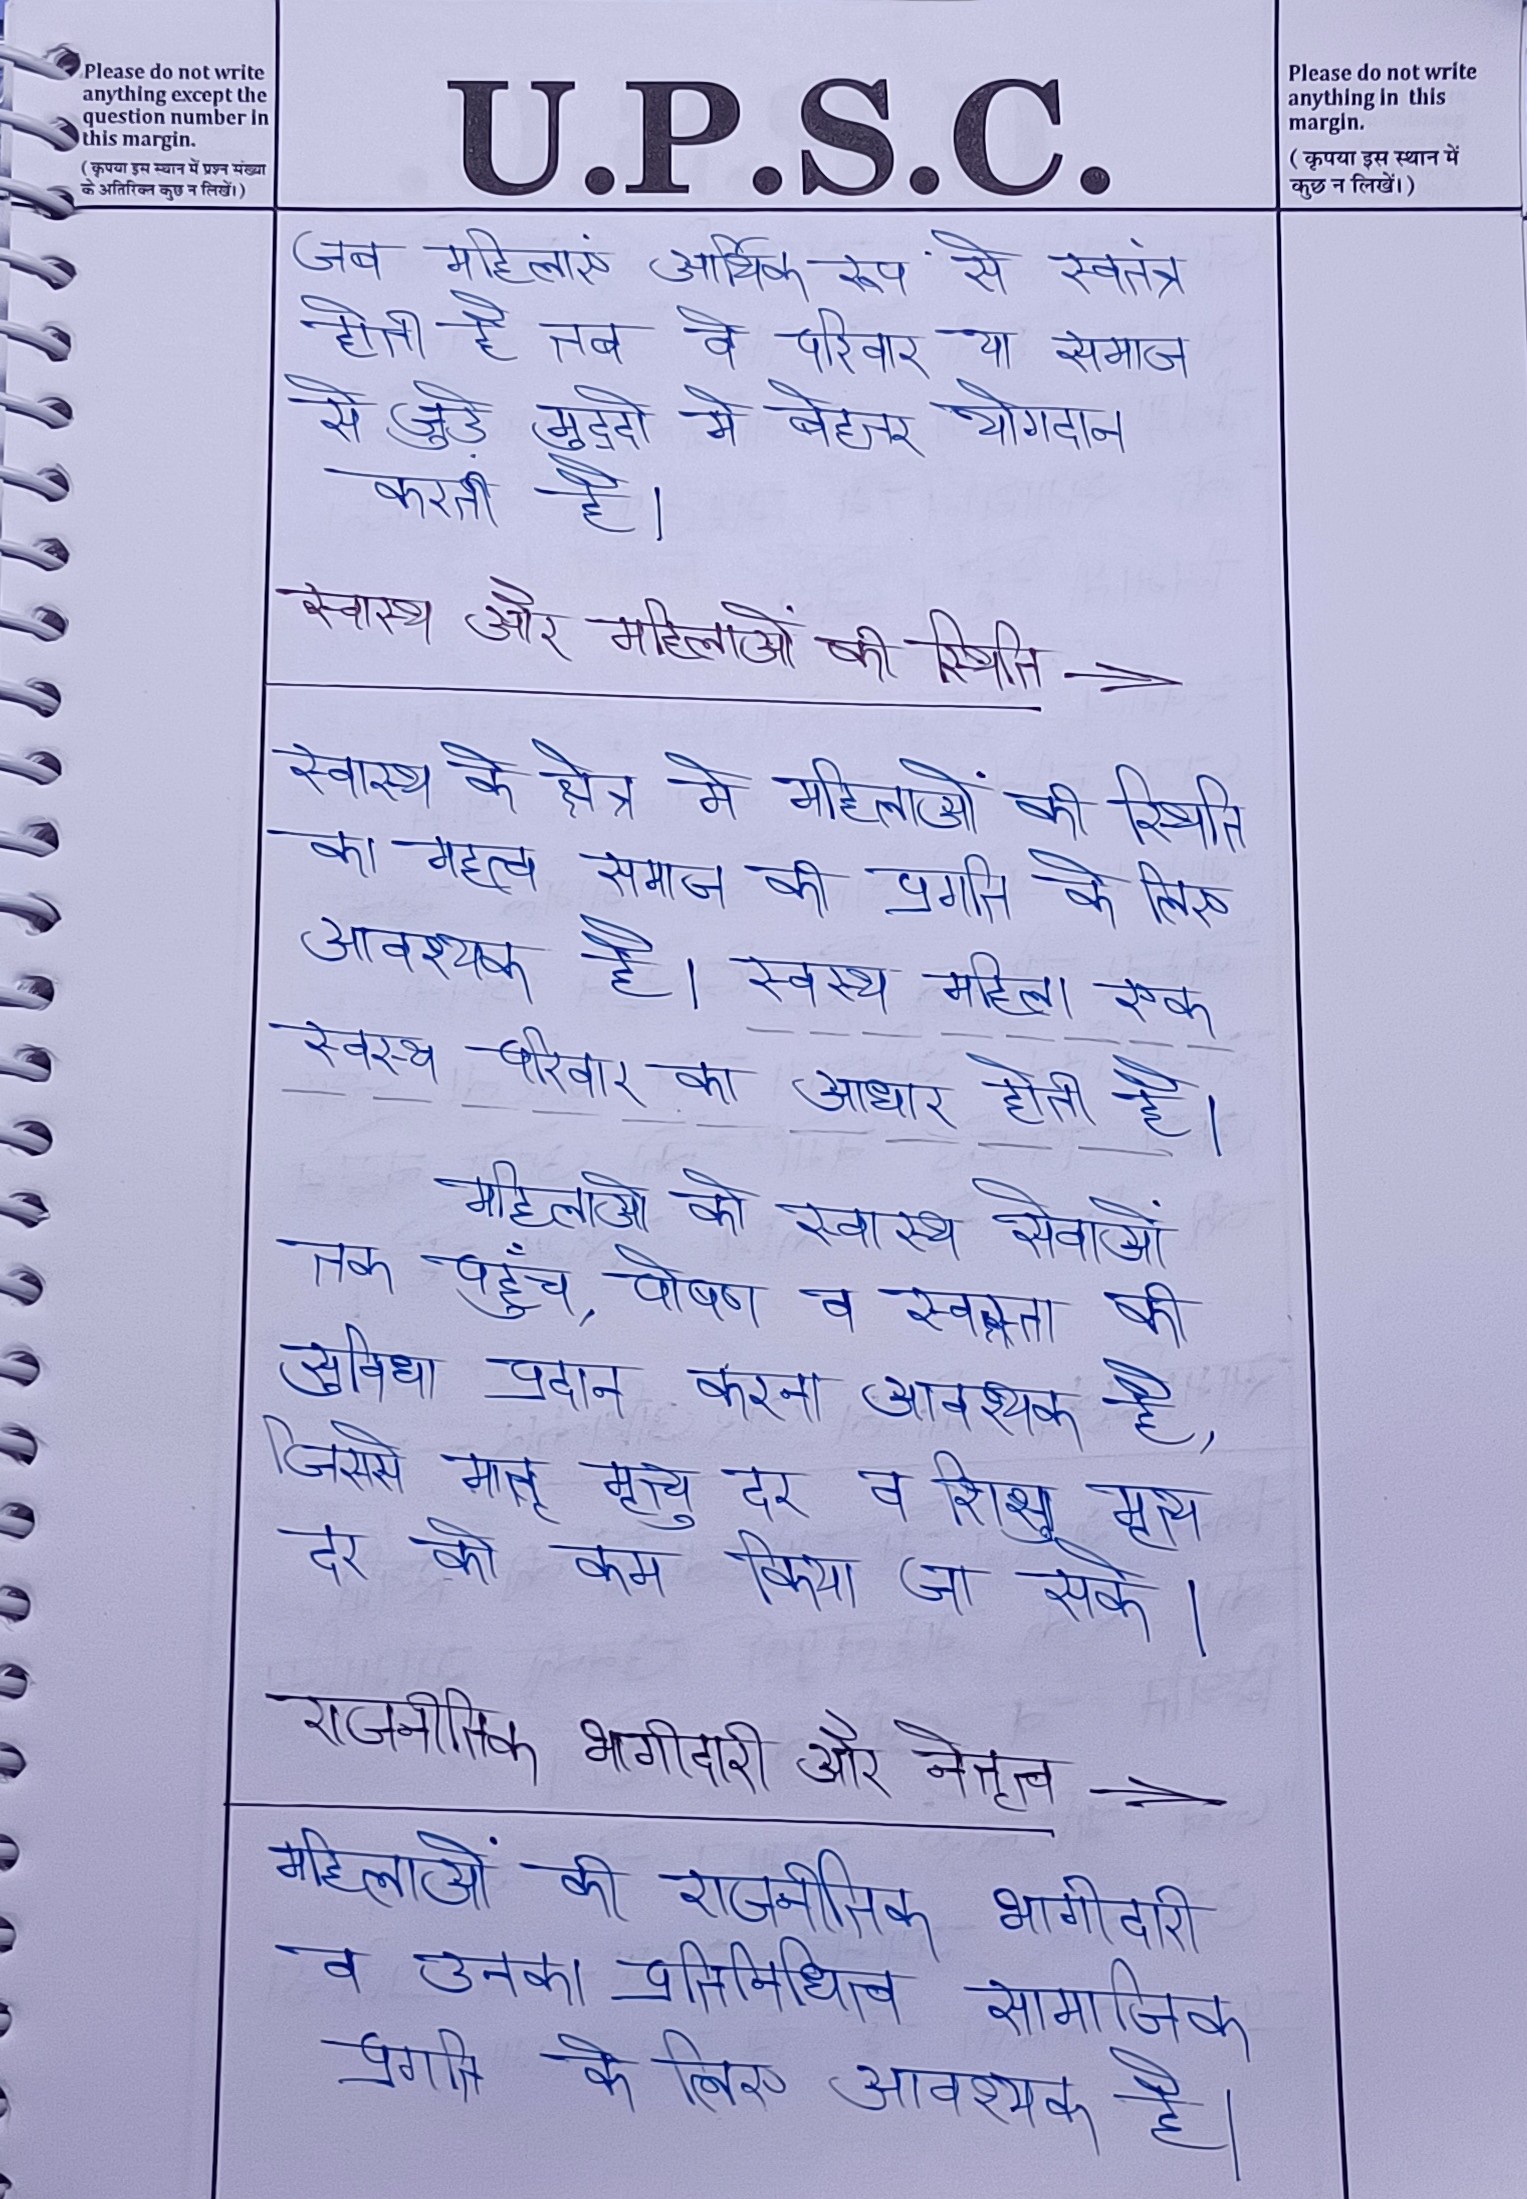 Please do not write
anything except the
question number in
this margin.
(कृपया इस स्थान में प्रश्न संख्या
के अतिरिक्त कुछ न लिखें।)
U.P.S.C.
Please do not write
anything in this
margin.
(कृपया इस स्थान में
कुछ न लिखें।)
जब महिलाएं आर्थिक रूप से स्वतंत्र
होती है तब वे परिवार या समाज
से जुड़े मुद्दो मे बेहतर योगदान
करती है।
स्वास्थ और महिलाओं की स्थिति →
स्वास्थ के क्षेत्र मे महिलाओं की स्थिति
का महत्व समाज की प्रगति के लिए
आवश्यक है। स्वस्थ महिला एक
स्वस्थ परिवार का आधार होती है।
महिलाओ को स्वास्थ सेवाओं
तक पहुँच, पोषण व की
सुविधा प्रदान करना आवश्यक है,
जिससे मातृ मृत्यु दर व शिशु मृत्य
दर को कम किया जा सके।
राजनीतिक भागीदारी और नेतृत्व →
महिलाओं की राजनीतिक भागीदारी
व उनका प्रतिनिधित्व सामाजिक
प्रगति के लिए आवश्यक है।